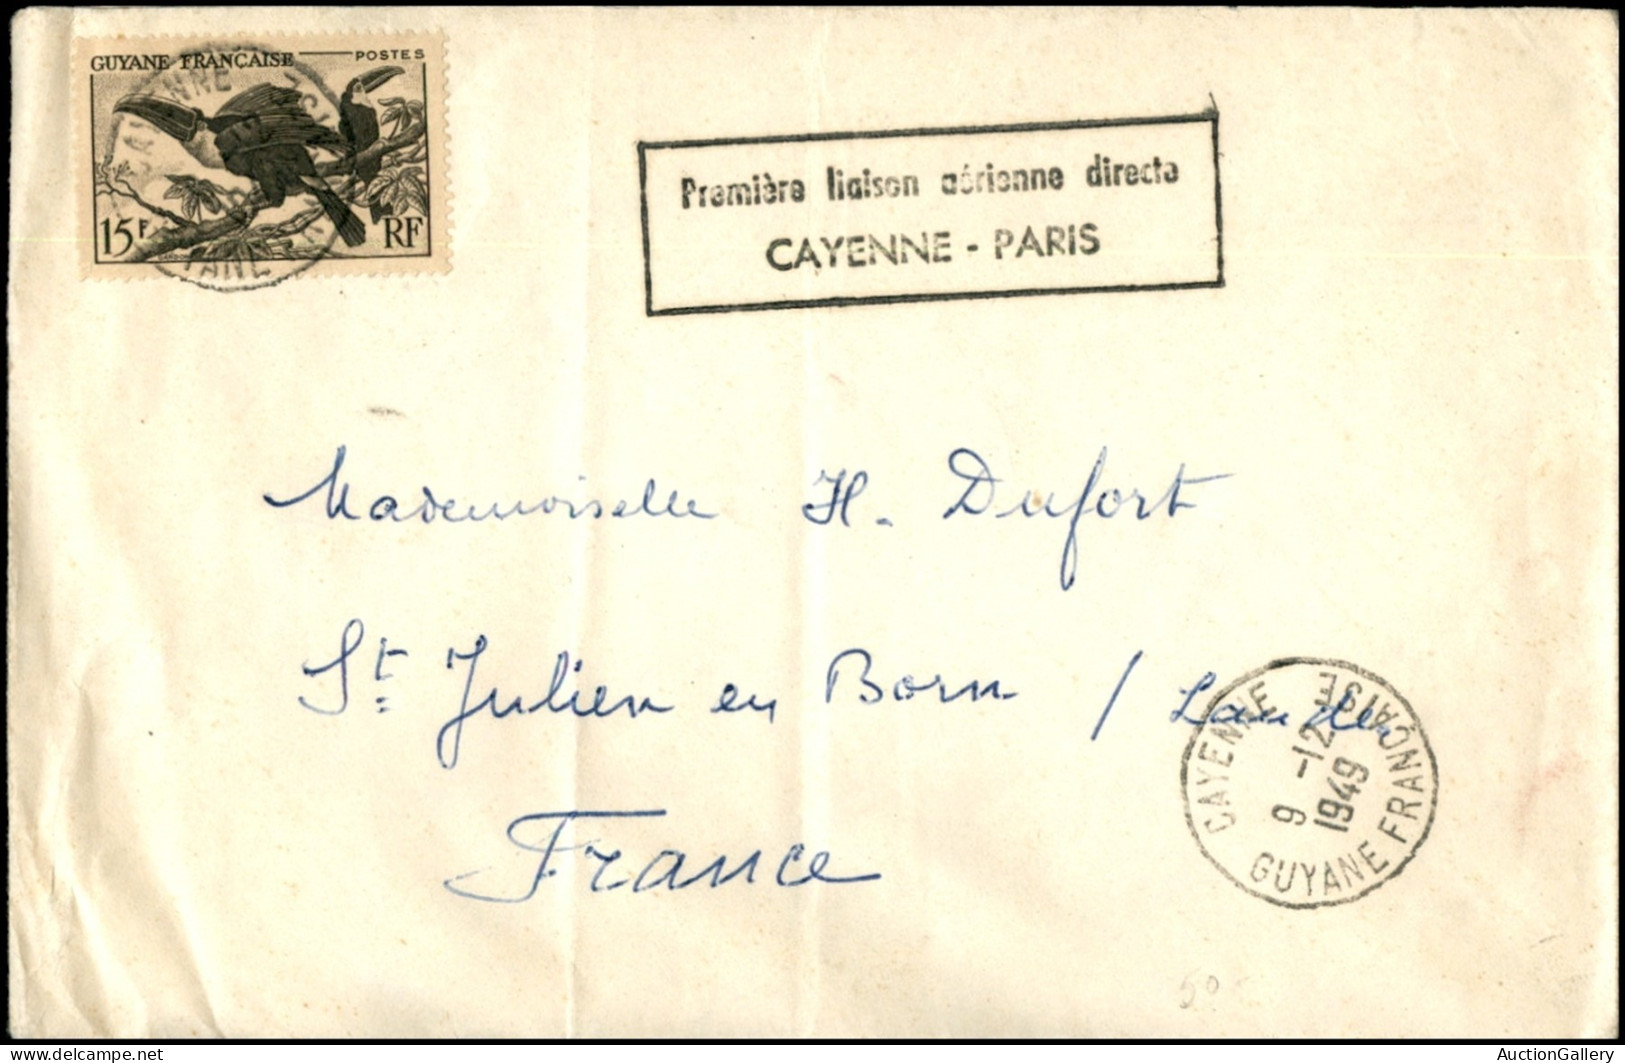 GUYANE FRANÇAISE POSTES
15F RF
Première liaison aérienne directe
CAYENNE - PARIS
Mademoiselle H. Dufort
St. Julien en Born / Landes
France
CAYENNE
9 -12
1949
GUYANE FRANÇAISE
50
AuctionGallery
delcampe.net